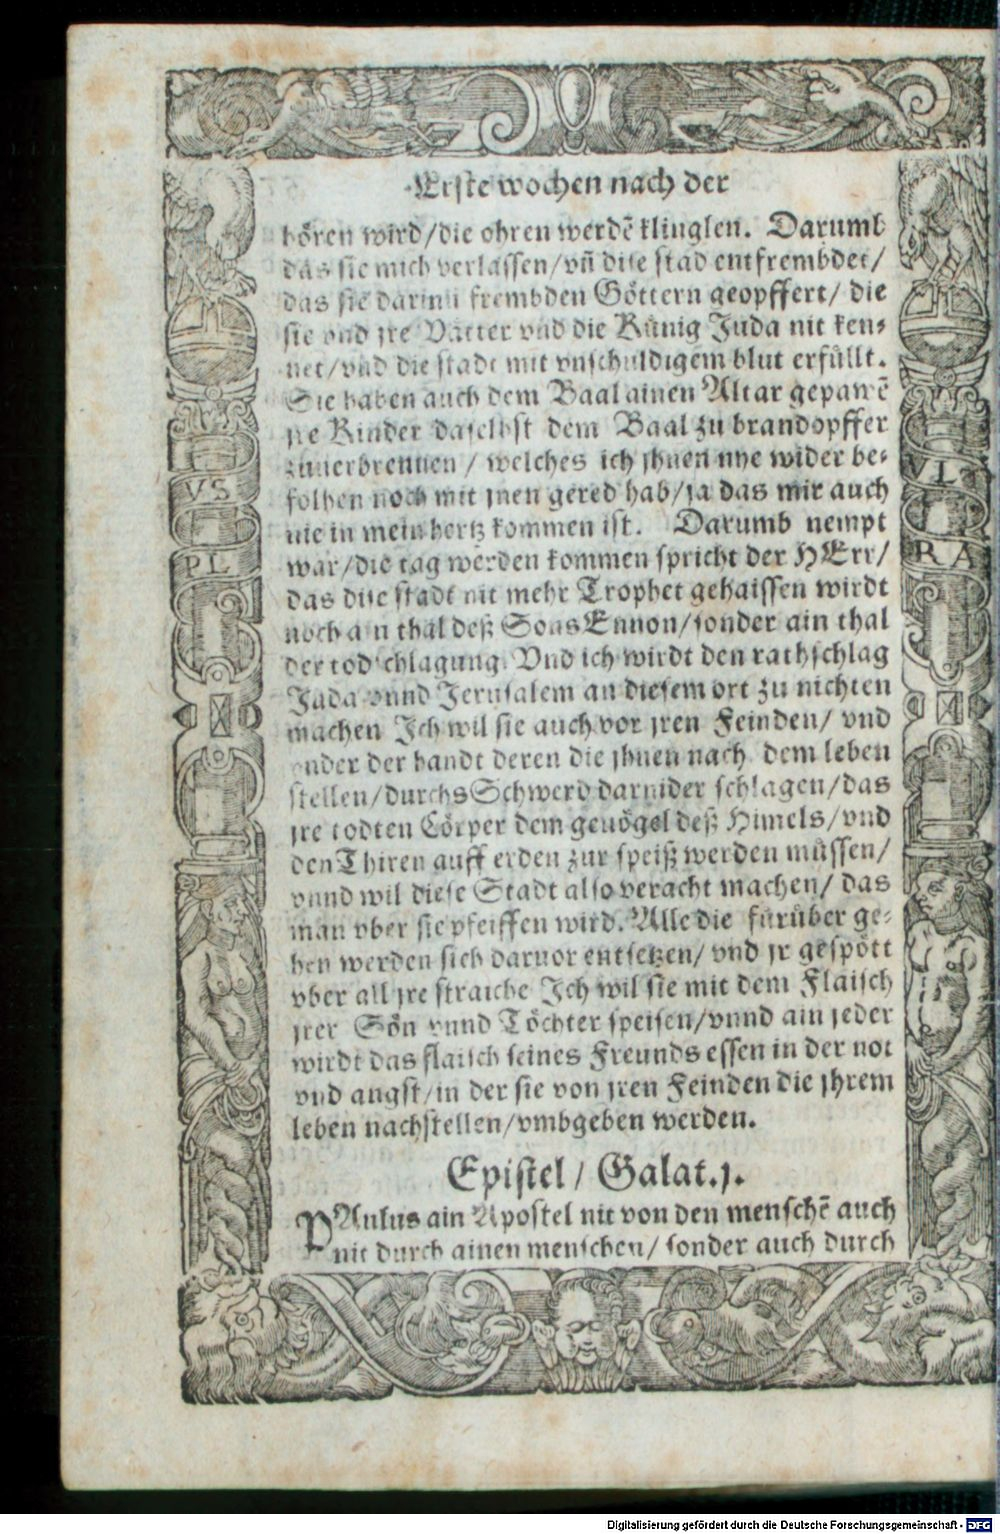 Erste wochen nach der
hören wird/die ohren werdē klinglen. Darumb
das sie mich verlassen/vñ dise stad entfrembdet/
das sie darinn frembden Göttern geopffert/ die
sie vnd jre Vätter vnd die Künig Juda nit ken⸗
net/vnd die stadt mit vnschuldigem blut erfüllt.
Sie haben auch dem Baal ainen Altar gepawē
jre Kinder daselbst dem Baal zu brandopffer
zuuerbrennen / welches ich jhnen nye wider be⸗
folhen noch mit jnen gered hab/ja das mir auch
nie in mein hertz kommen ist. Darumb nempt
war/die tag werden kommen spricht der HErr/
das dise stadt nit mehr Trophet gehaissen wirdt
noch ain thal deß Sons Ennon/sonder ain thal
der todschlagung. Vnd ich wirdt den rathschlag
Juda vnnd Jerusalem an diesem ort zu nichten
machen Ich wil sie auch vor jren Feinden/ vnd
vnder der handt deren die jhnen nach dem leben
stellen/durchs Schwerd darnider schlagen/das
jre todten Cörper dem geuögel deß Himels/vnd
den Thiren auff erden zur speiß werden müssen/
vnnd wil diese Stadt also veracht machen/ das
man vber sie pfeiffen wird. Alle die fürüber ge⸗
hen werden sich daruor entsetzen/ vnd jr gespött
vber all jre straiche Ich wil sie mit dem Flaisch
jrer Sön vnnd Töchter speisen/vnnd ain jeder
wirdt das flaisch seines Freunds essen in der not
vnd angst/in der sie von jren Feinden die jhrem
leben nachstellen/vmbgeben werden.
Epistel / Galat.j.
PAulus ain Apostel nit von den menschē auch
nit durch ainen menschen/ sonder auch durch
VS
PL
VL
RA
Digitalisierung gefördert durch die Deutsche Forschungsgemeinschaft - DFG